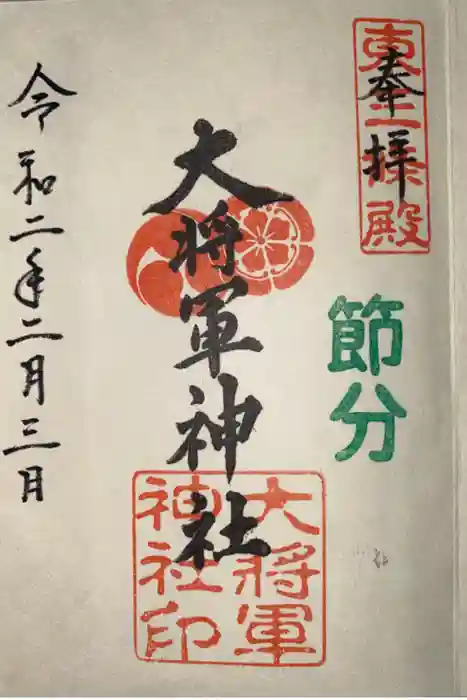 東三條殿
奉拝
節分
大将軍神社
大将軍
神社印
令和二年二月三日